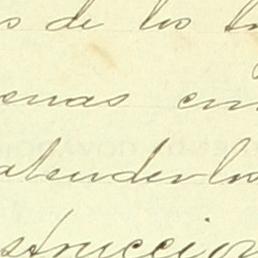 s de los
enas en
atenderlos
struccion